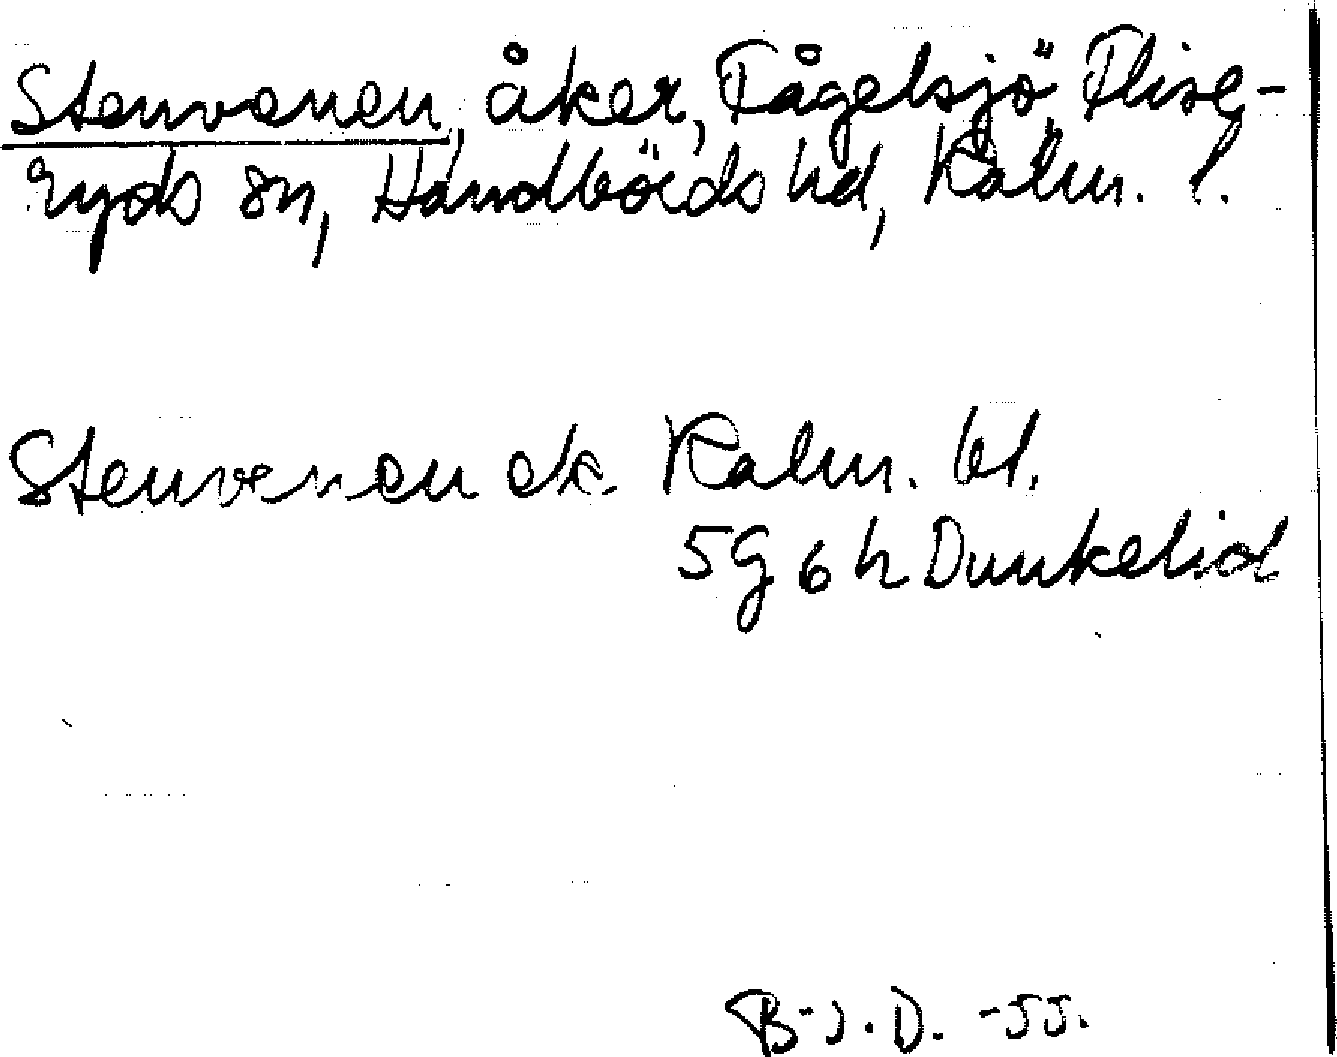 Stenvenen, åker, Fågelsjö, Flise-
ryds sn, Handbörds hd, Kalm. l.
Stenvenen ek. Kalm. bl.
5G 6h Dunkelid
B-J.D. -55.